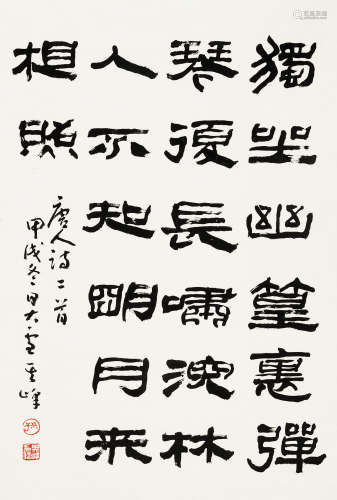 獨坐幽篁裏彈
琴復長嘯深林
人不知明月来
相照
唐人詩一首
甲戌冬日大雪